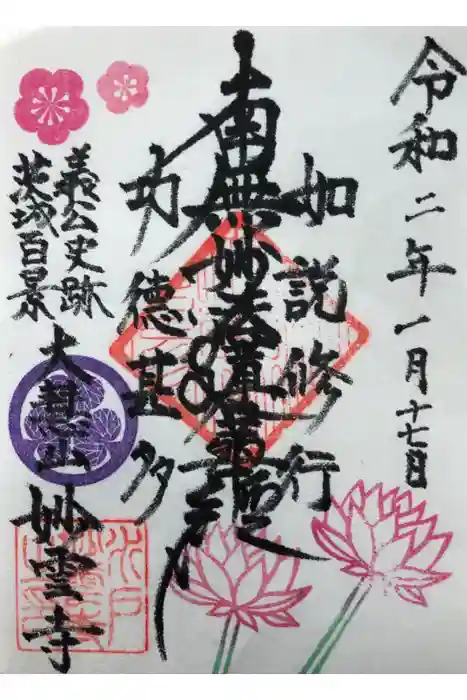 令和二年一月十七日
如説修行
南無妙法蓮華経
功徳甚多
義公史跡
茨城百景
大慧山 妙雲寺